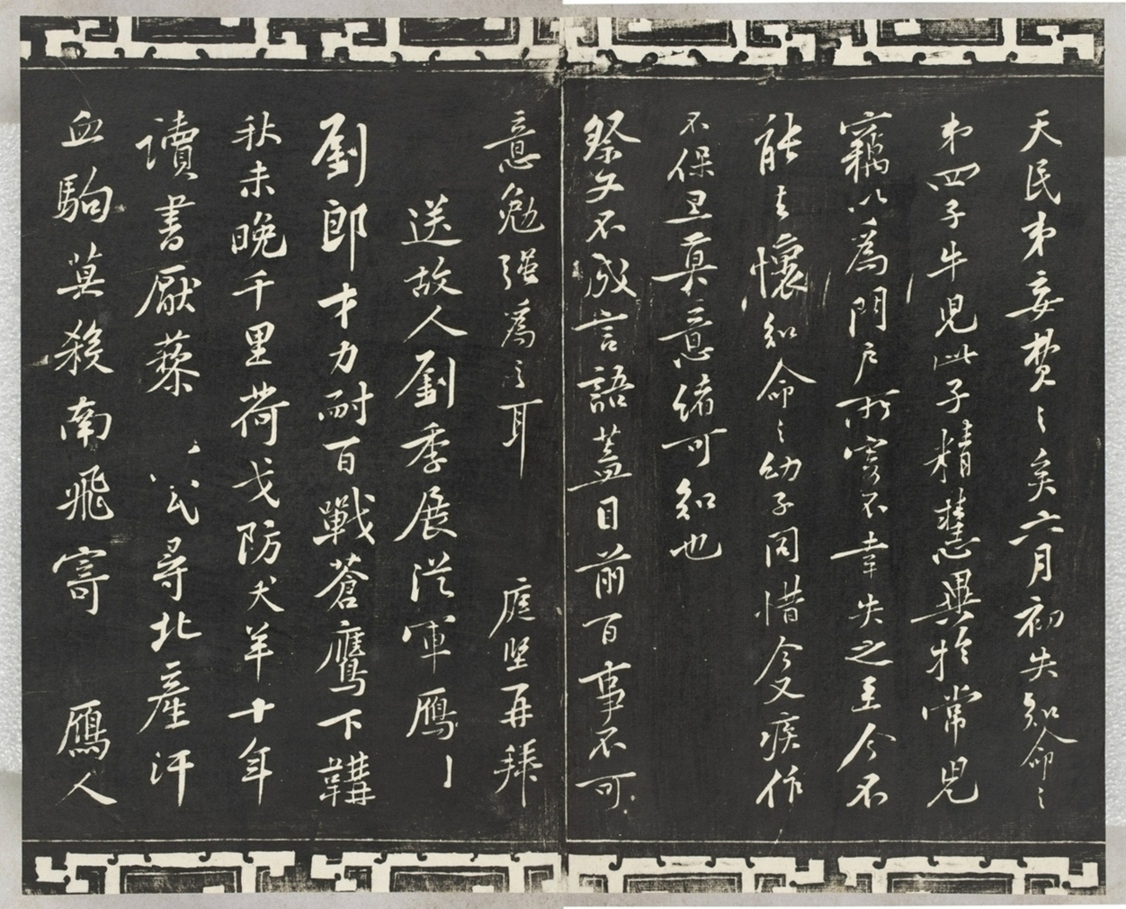 天民弟妾焚々矣六月初失知命々
弟四子牛兒此子精慧異於常兒
竊以為門戶所寄不幸失之至今不
能去懷知命々幼子同惜今又疾作
不保且莫意緒可知也
祭文不成言語蓋目前百事不可
意勉强為之耳 庭堅再拜
送故人劉季展從軍雁
劉郎才力耐百戰蒼鷹下韝
秋未晚千里荷戈防犬羊十年
讀書厭藜 尋北產汗
血駒莫殺南飛寄 鴈人